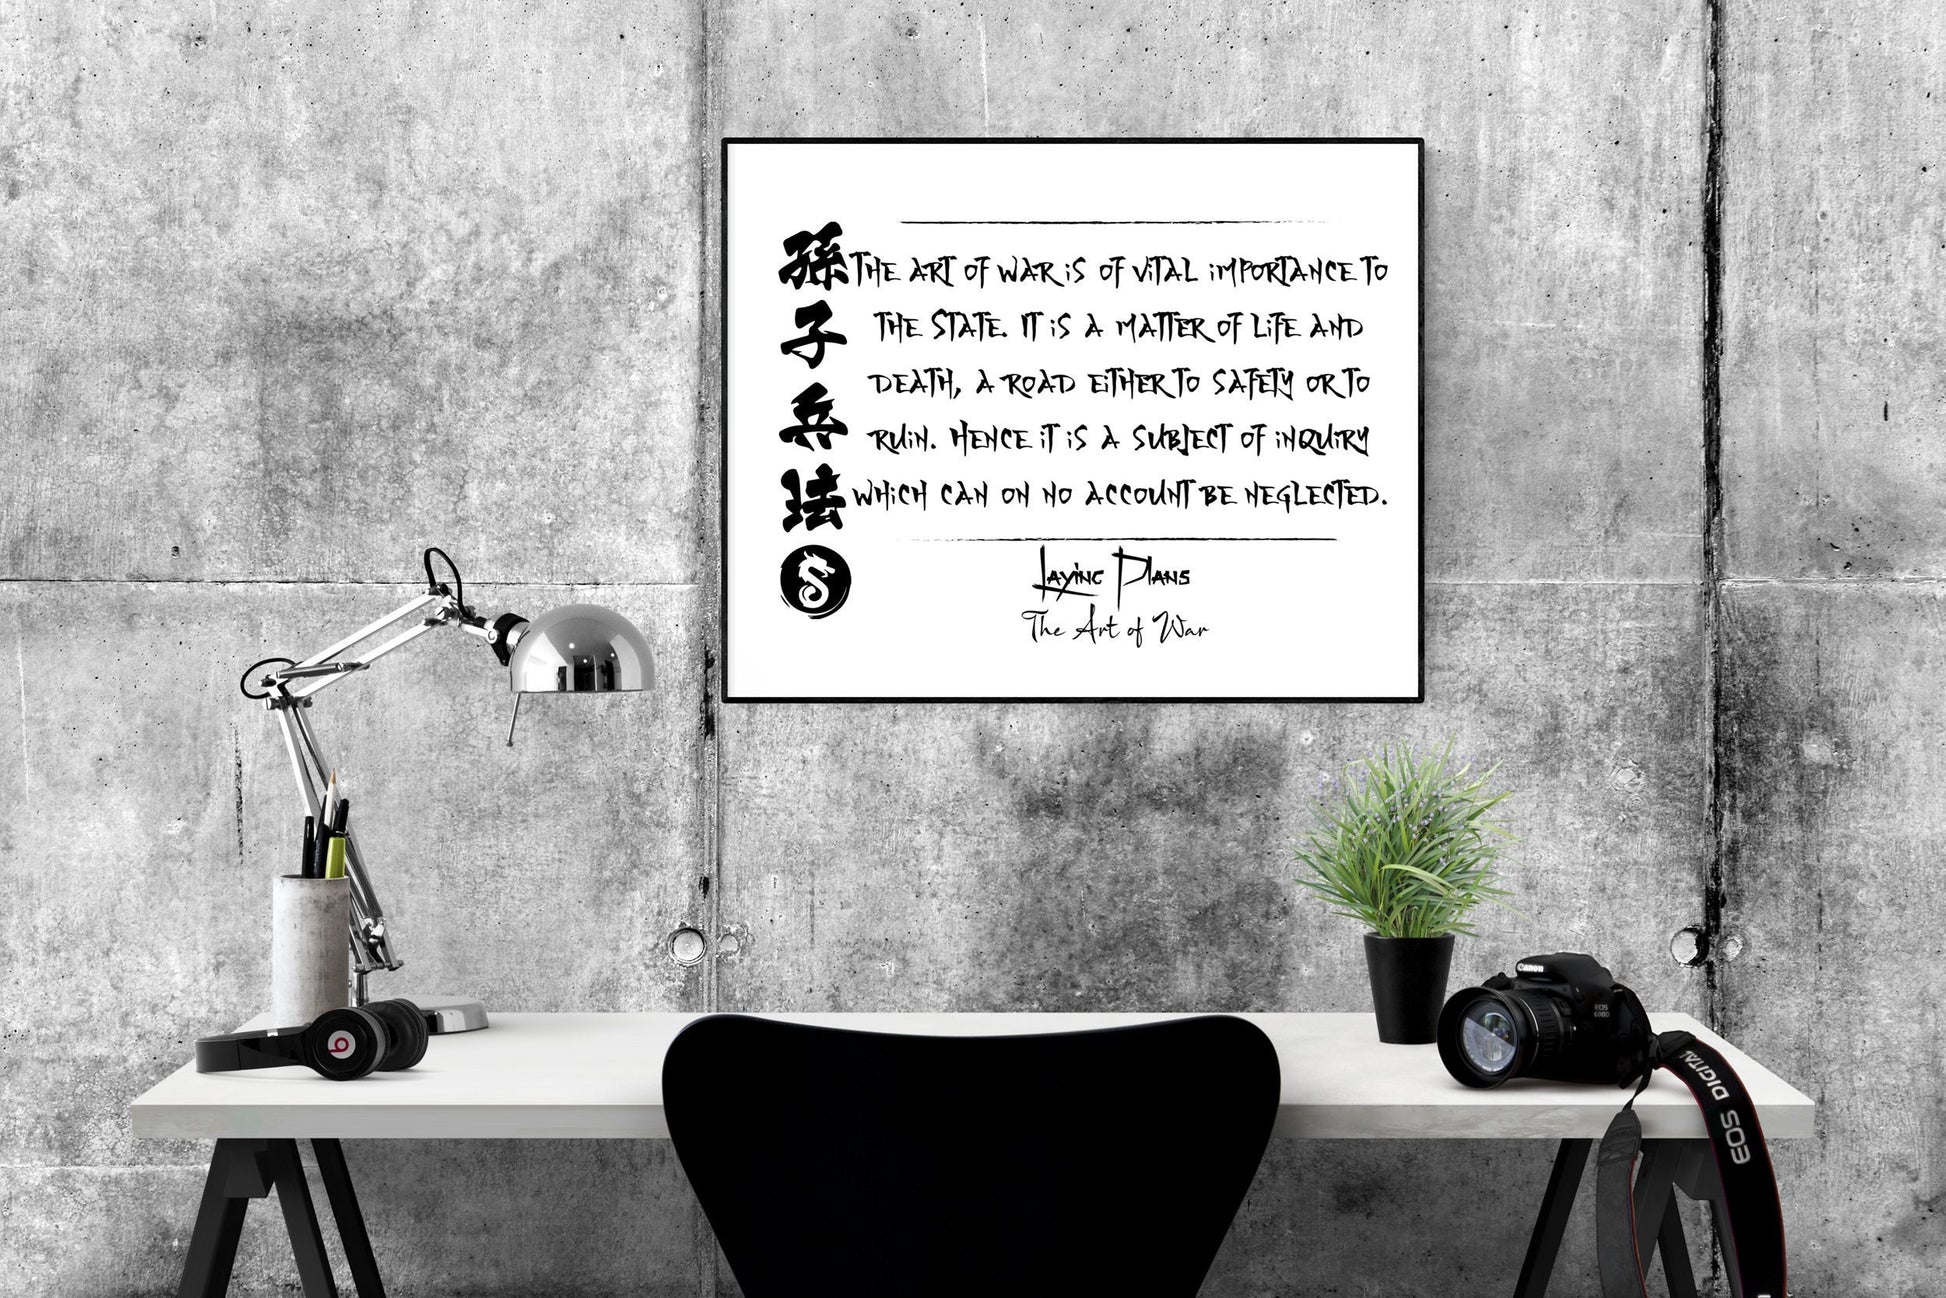 孫子兵法
THE ART OF WAR iS OF ViTAL iMPORTANCE TO
THE STATE. IT iS A MATTER OF LiFE AND
DEATH, A ROAD EiTHER TO SAFETY OR TO
RUiN. HENCE iT iS A SUBJECT OF iNQUiRY
WHiCH CAN ON NO ACCOUNT BE NEGLECTED.
Laying Plans
The Art of War
Canon
EOS
600D
EOS DIGITAL
b